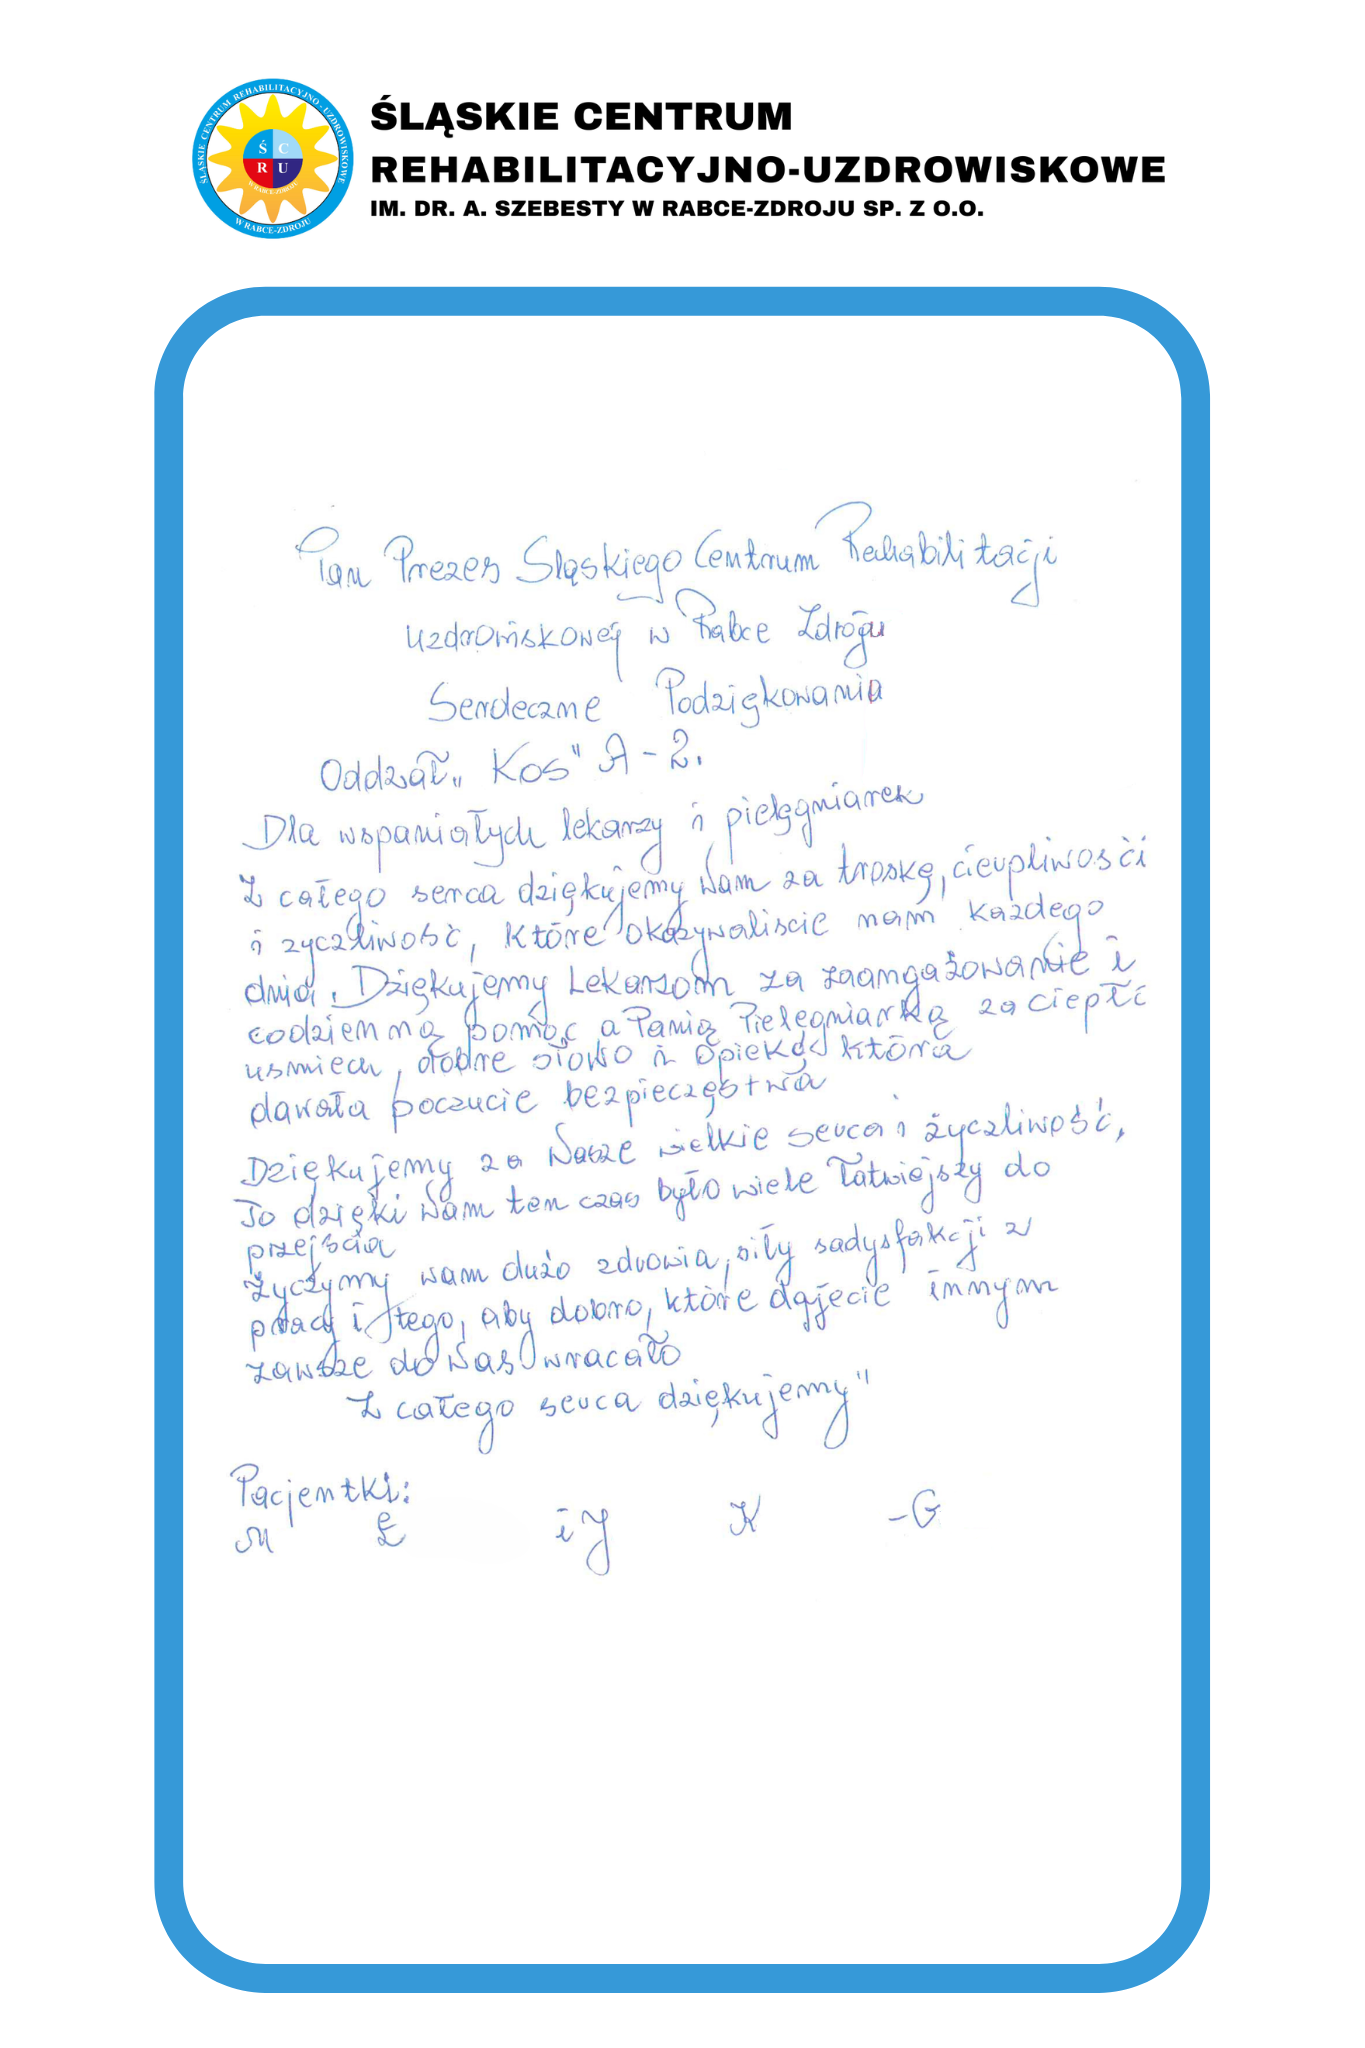 ŚLĄSKIE CENTRUM REHABILITACYJNO - UZDROWISKOWE
Ś C
R U
W RABCE-ZDROJU
W RABCE-ZDROJU
ŚLĄSKIE CENTRUM
REHABILITACYJNO-UZDROWISKOWE
IM. DR. A. SZEBESTY W RABCE-ZDROJU SP. Z O.O.
Pan Prezes Sląskiego Centrum Rechabilitacji
uzdrowiskowej w Rabce Zdroju
Serdeczne Podziękowania
Oddział „Kos" A-2.
Dla wspaniałych lekarzy i pielęgniarek
Z całego serca dziękujemy Wam za troskę, cierpliwości
i zyczliwość, które okazywaliscie nam każdego
dnia. Dziękujemy Lekarzom za zaangażowanie i
codzienną pomoc a Panią Pielęgniarką za ciepłi
usmiech, dobre słowo i opiekę która
dawała poczucie bezpieczęstwa
Dziękujemy za Wasze wielkie serca i życzliwość,
To dzięki Wam ten czas było wiele łatwiejszy do
przejścia
Życzymy wam dużo zdrowia, siły sadysfakcji z
pracy i tego, aby dobro, które dajecie innym
zawsze do Was wracało
Z całego serca dziękujemy"
Pacjentki:
M Ł i J K -G